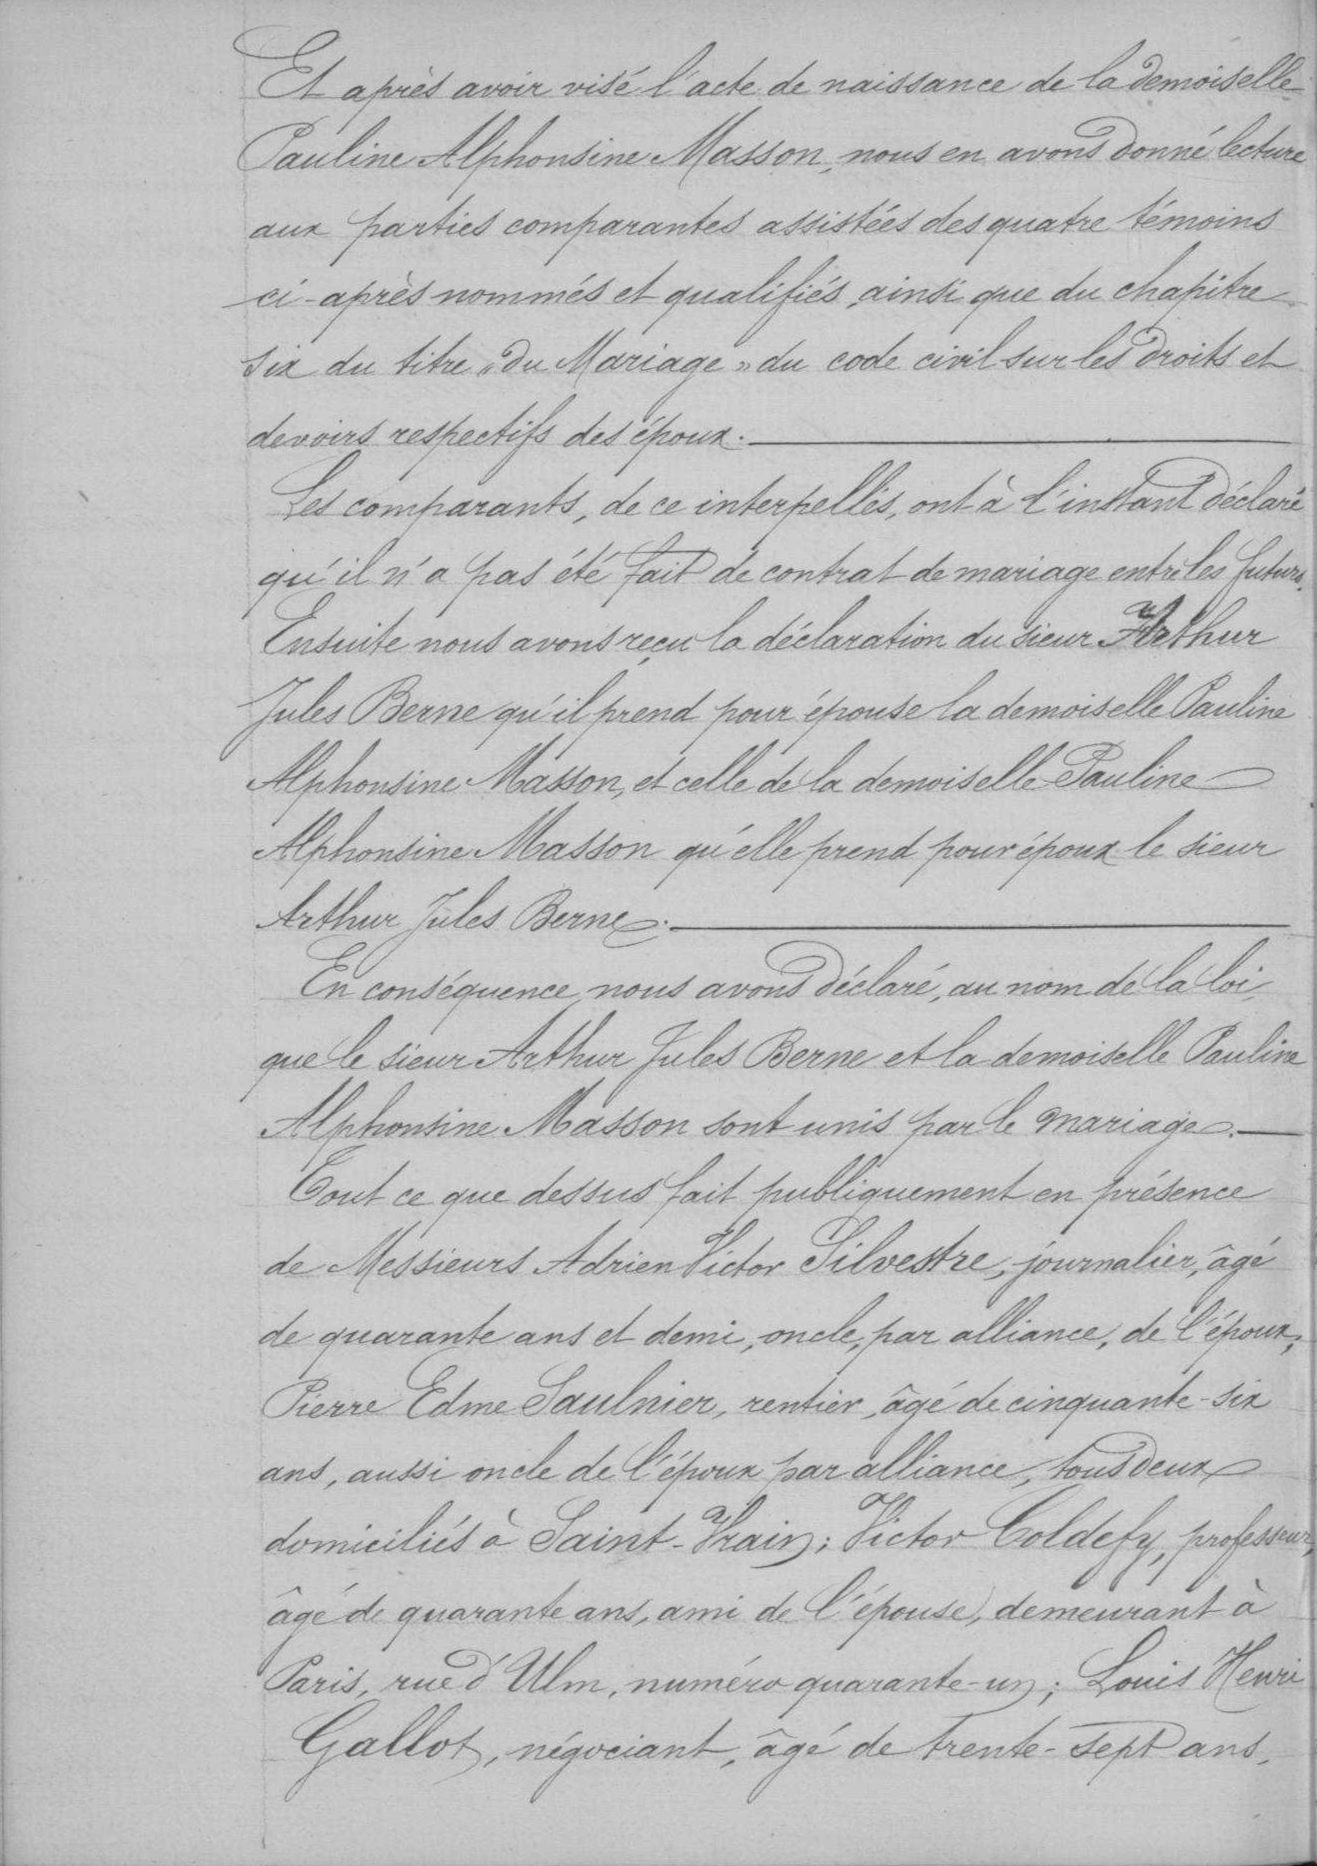 Et après avoir visé l'acte de naissance de la demoiselle
Pauline Alphonsine Masson, nous en avons donné lecture
aux parties comparantes assistées des quatre témoins
ci-après nommés et qualifiés, ainsi que du chapitre
six du titre „du Mariage" du code civil sur les droits et
devoirs respectifs des époux.
Les comparants, de ce interpellés, ont à l'instant déclaré
qu'il n'a pas été fait de contrat de mariage entre les futurs.
Ensuite nous avons reçu la déclaration du sieur Arthur
Jules Berne qu'il prend pour épouse la demoiselle Pauline
Alphonsine Masson, et celle de la demoiselle Pauline
Alphonsine Masson qu'elle prend pour époux le sieur
Arthur Jules Berne.
En conséquence, nous avons déclaré, au nom de la loi,
que le sieur Arthur Jules Berne et la demoiselle Pauline
Alphonsine Masson sont unis par le mariage.
Tout ce que dessus fait publiquement en présence
de Messieurs Adrien Victor Silvestre, journalier, âgé
de quarante ans et demi, oncle, par alliance, de l'époux;
Pierre Edme Saulnier, rentier, âgé de cinquante-six
ans, aussi oncle de l'époux par alliance, tous deux
domiciliés à Saint-Vrain; Victor Coldefy, professeur,
âgé de quarante ans, ami de l'épouse, demeurant à
Paris, rue d'Ulm, numéro quarante-un; Louis Henri
Gallot, négociant, âgé de trente-sept ans,